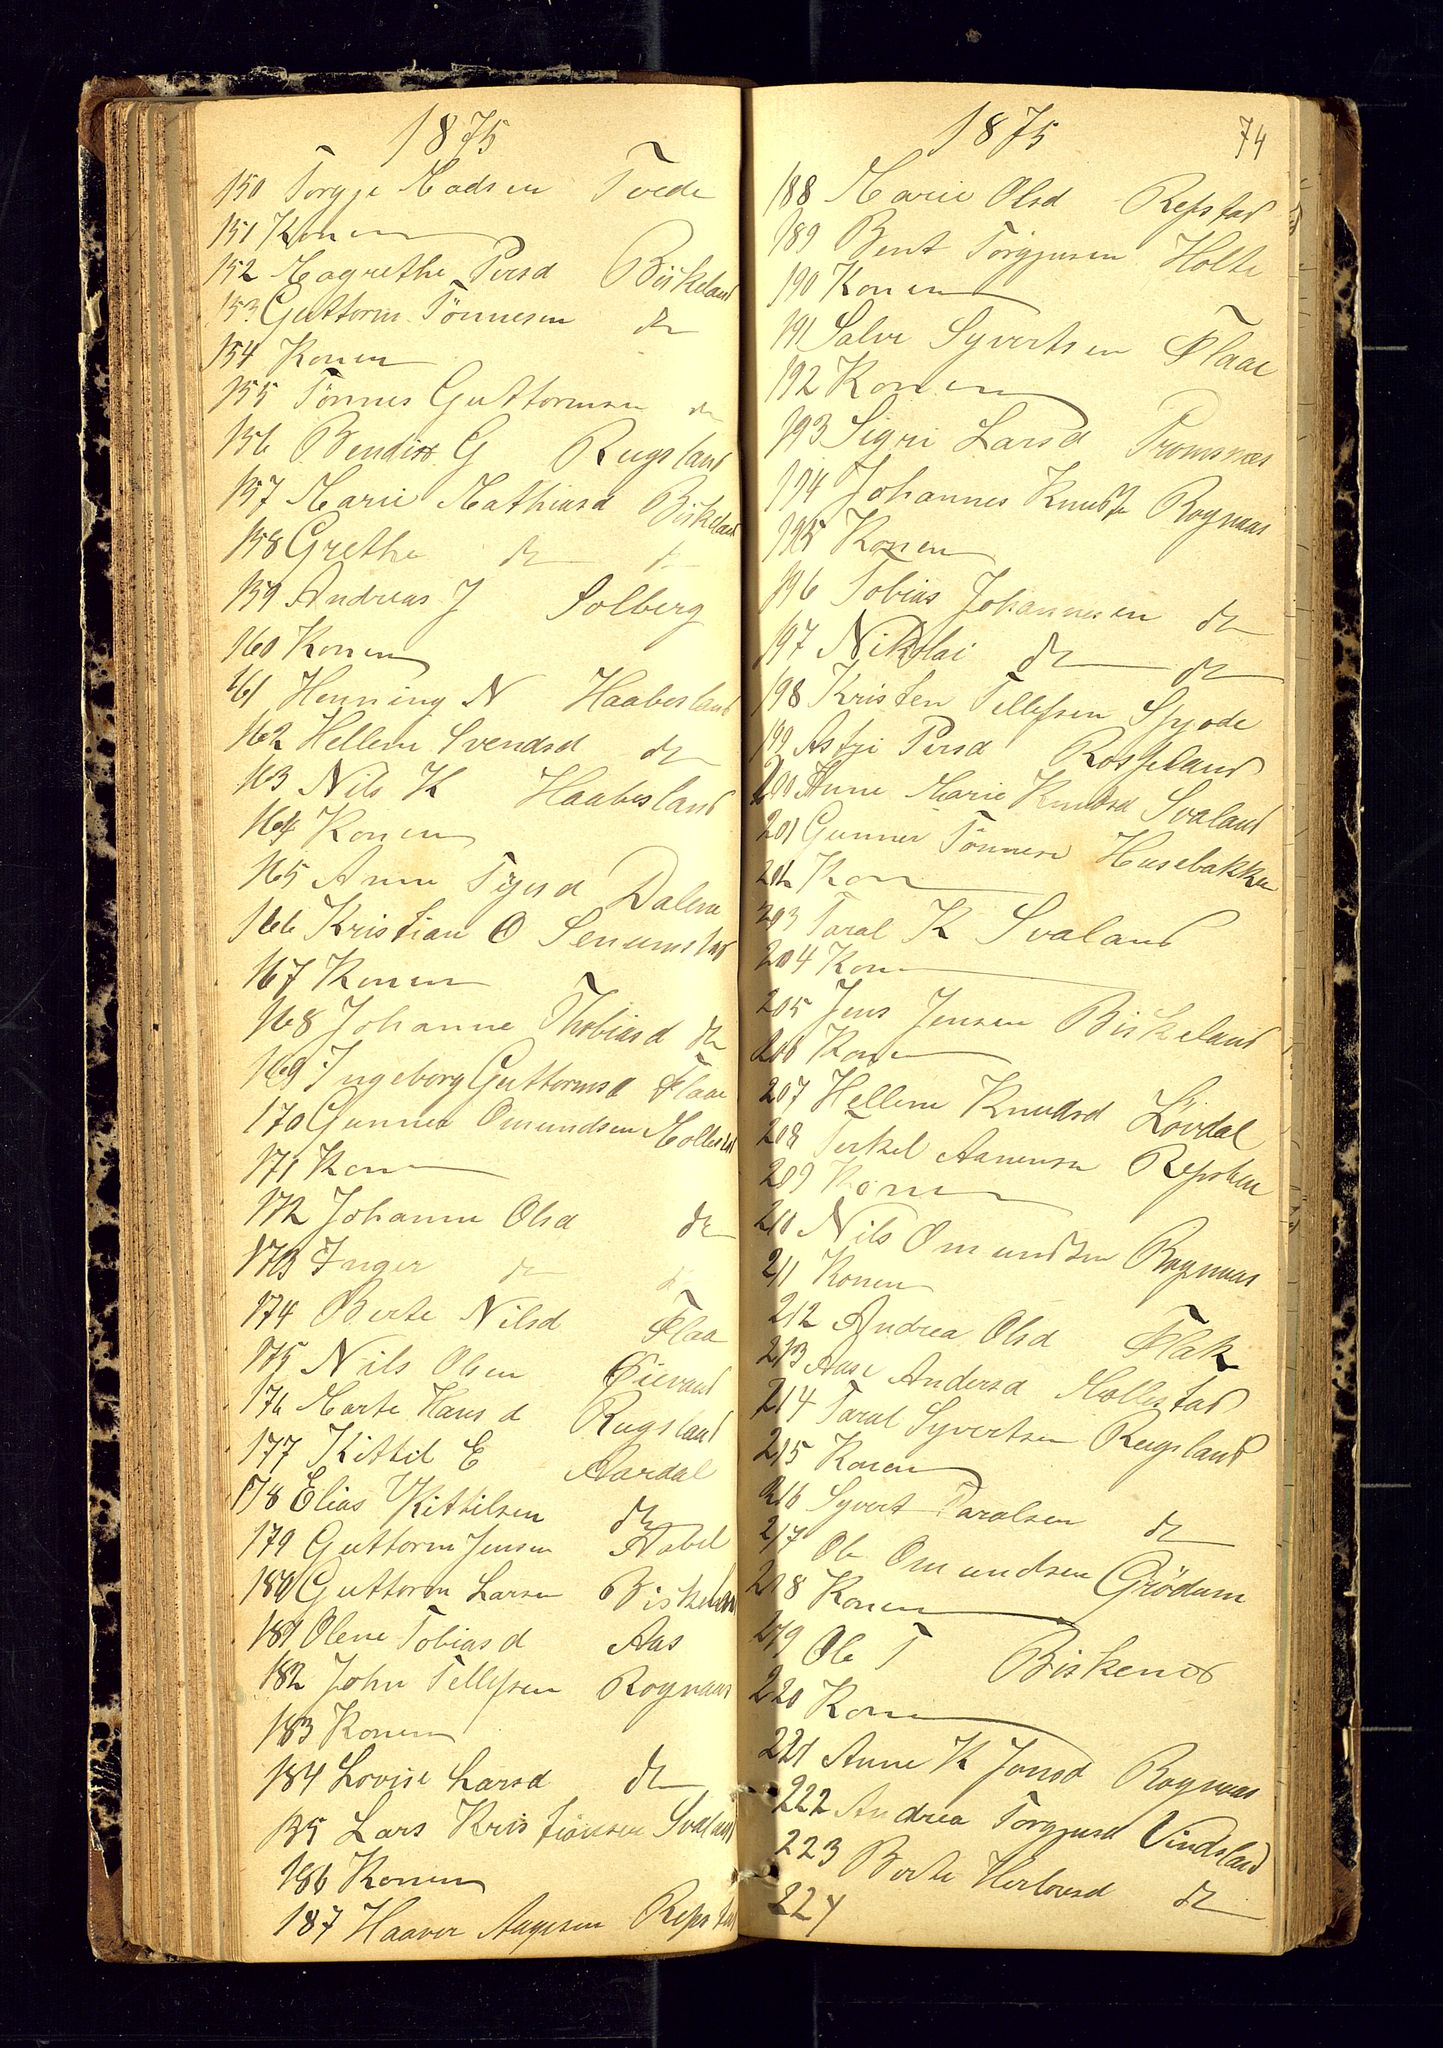 1875
150 Torgje Madsen Tvede
151 Konen
152 Magrethe Persd Birkeland
153 Guttorm Tönnesen do
154 Konen
155 Tönnes Guttormsen do
156 Bendix G Rugsland
157 Marie Mathiasd Birkeland
158 Grethe do
159 Andreas J Solberg
160 Konen
161 Henning N Haabesland
162 Hellene Svendsd do
163 Nils K Haabesland
164 Konen
165 Anne Dalene
166 Kristian O Senumstad
167 Konen
168 Johanne Thobiasd do
169 Ingeborg Guttormsd Flaae
170 Gunner Omundsen Mollestad
171 Konen
172 Johanne Olsd do
173 Inger do do
174 Berte Nilsd Flaa
175 Nils Olsen Øievand
176 Marte Hansd Rugsland
177 Kittil E Aardal
178 Elias Kittilsen do
179 Guttorm Jensen Aabel
180 Guttorm Larsen Birkeland
181 Olene Tobiasd Aas
182 John Tellefsen Rognaas
183 Konen
184 Lovise Larsd do
185 Lars Kristiansen Svaland
186 Konen
187 Haaver Aagesen Repstad
1875 74
188 Marie Olsd Repstad
189 Bent Torgjusen Holte
190 Konen
191 Salve Syvertsen Flaae
192 Konen
193 Sigri Larsd Tromsnæs
194 Johannes Rognaas
195 Konen
196 Tobias Johannesen do
197 Nikolai do do
198 Kristen Tellefsen
199 Persd Rosseland
200 Anne Marie Knudsd Svaland
201 Gunner Tönnese Husebakken
202 Kon
203 Taral K Svaland
204 Kon
205 Jens Jensen Birkeland
206 Kone
207 Hellene Knudsd Lövdal
208 Terkel Aanensen
209 Konen
210 Nils Omundsen Rognaas
211 Konen
212 Andrea Olsd Flak
213 Aase Andersd Mollestad
214 Taral Syvertsen Rugsland
215 Konen
216 Syvert Taralsen do
217 Ole Omundsen Grödum
218 Konen
219 Ole T
220 Konen
221 Anne K Jonsd Rognaas
222 Andrea Torgjusd Vindsland
223 Berte Herlovsd do
224